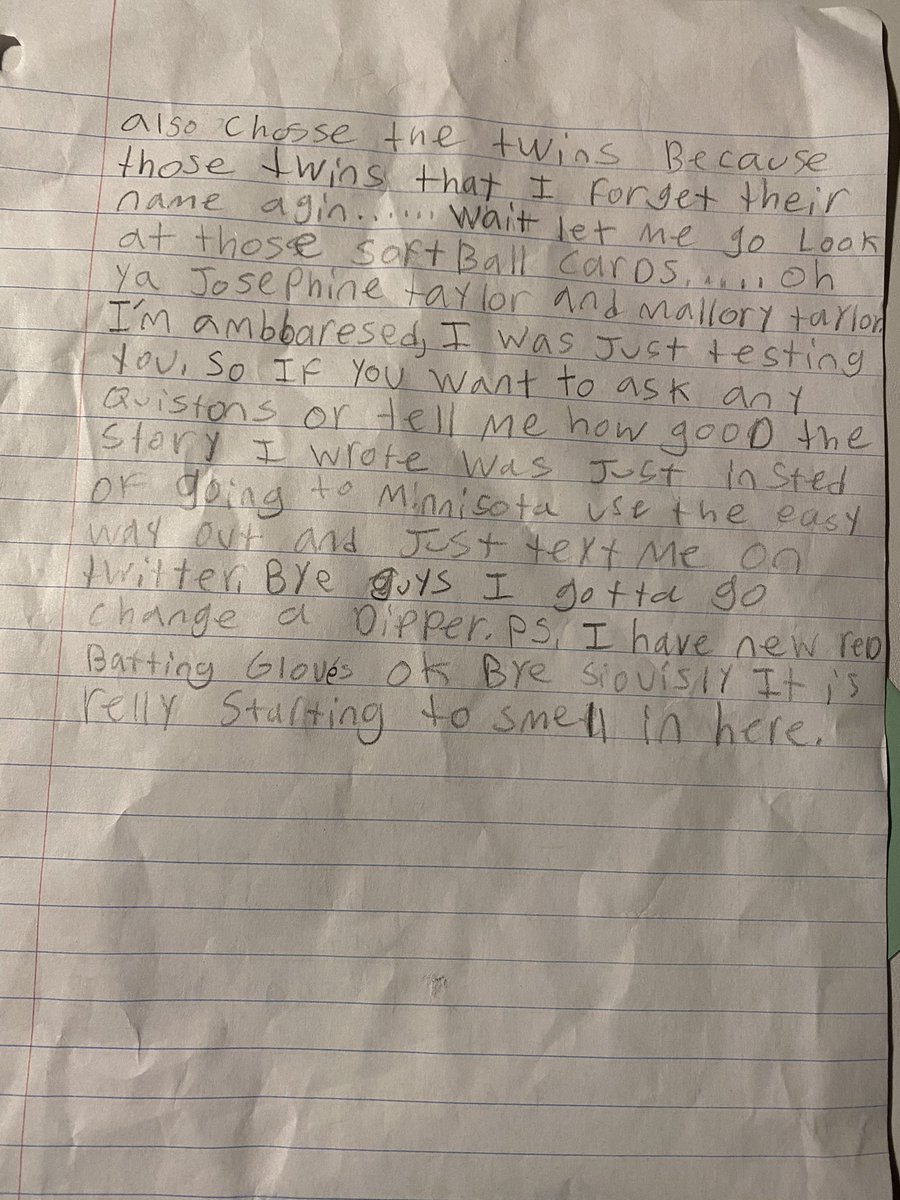 also chosse the twins Because
those twins that I Forget their
name agin...... wait let me go Look
at those softBall cards...... oh
ya Josephine taylor and mallory taylor
I'm ambbaresed, I was Just testing
you. So IF you want to ask any
Quistons or tell me how good the
story I wrote was Just insted
OF going to Minnisota use the easy
way out and Just text me on
twitter. Bye guys I gotta go
change a Dipper. PS. I have new red
Batting Gloves ok Bye siouisly It is
relly Starting to smell in here.